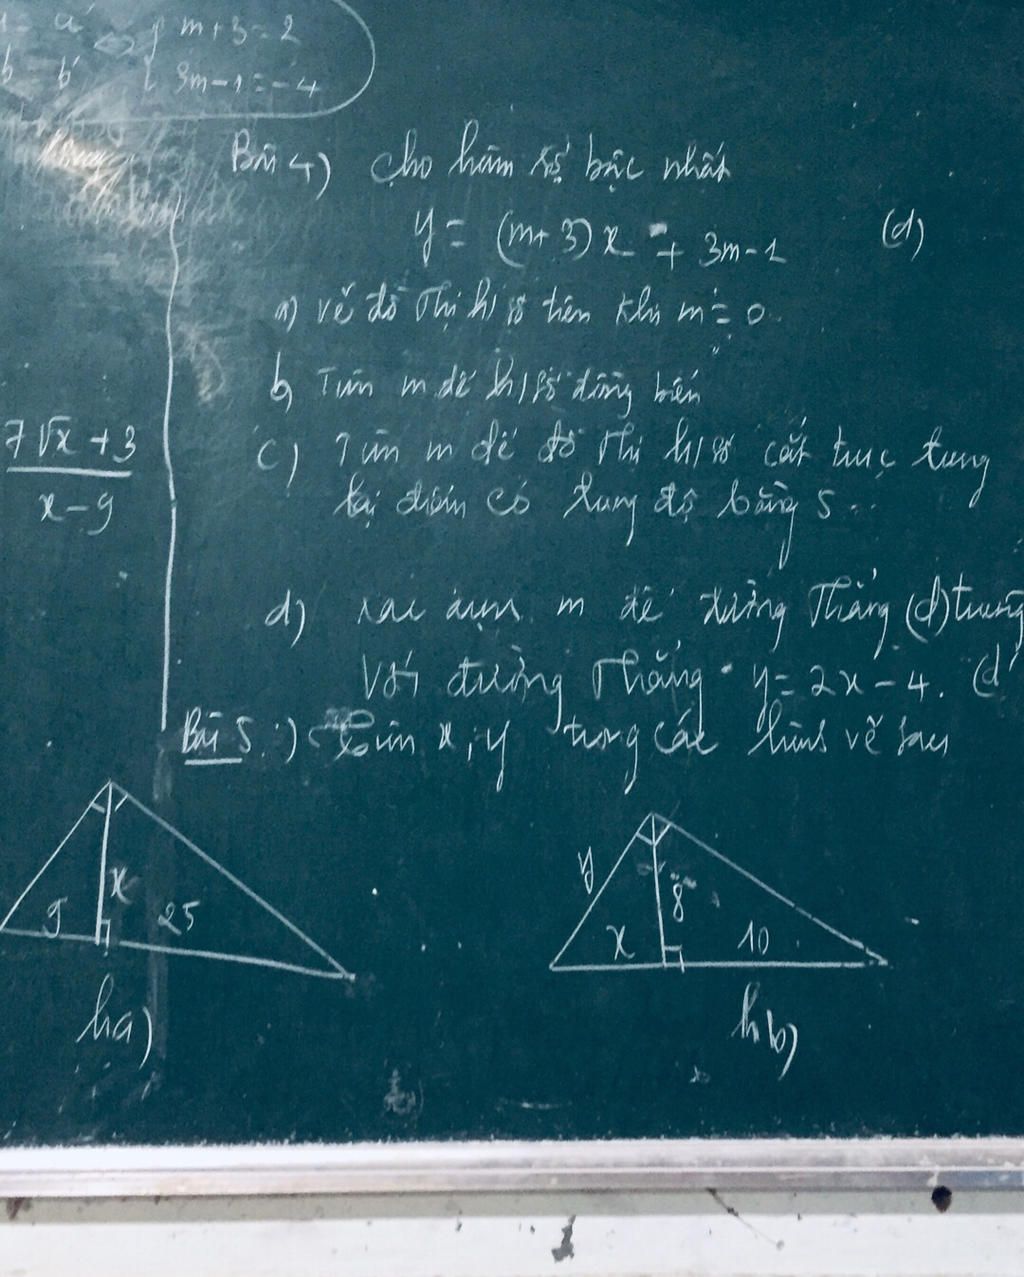 = a' <=> { m+3 = 2
b = b' { 3m-1 = -4
Bài 4) Cho hàm số bậc nhất
y = (m+3)x + 3m-1 (d)
a) vẽ đồ thị h/số trên khi m = 0
b) Tìm m để h/số đồng biến
c) Tìm m để đồ thị h/số cắt trục tung
tại điểm có tung độ bằng 5
7√x + 3
x - 9
d) xác định m để đường thẳng (d) trùng
Với đường thẳng y = 2x - 4. (d'
Bài 5:) Tìm x, y trong các hình vẽ sau
x
9
25
ha)
y
8
x
10
hb)